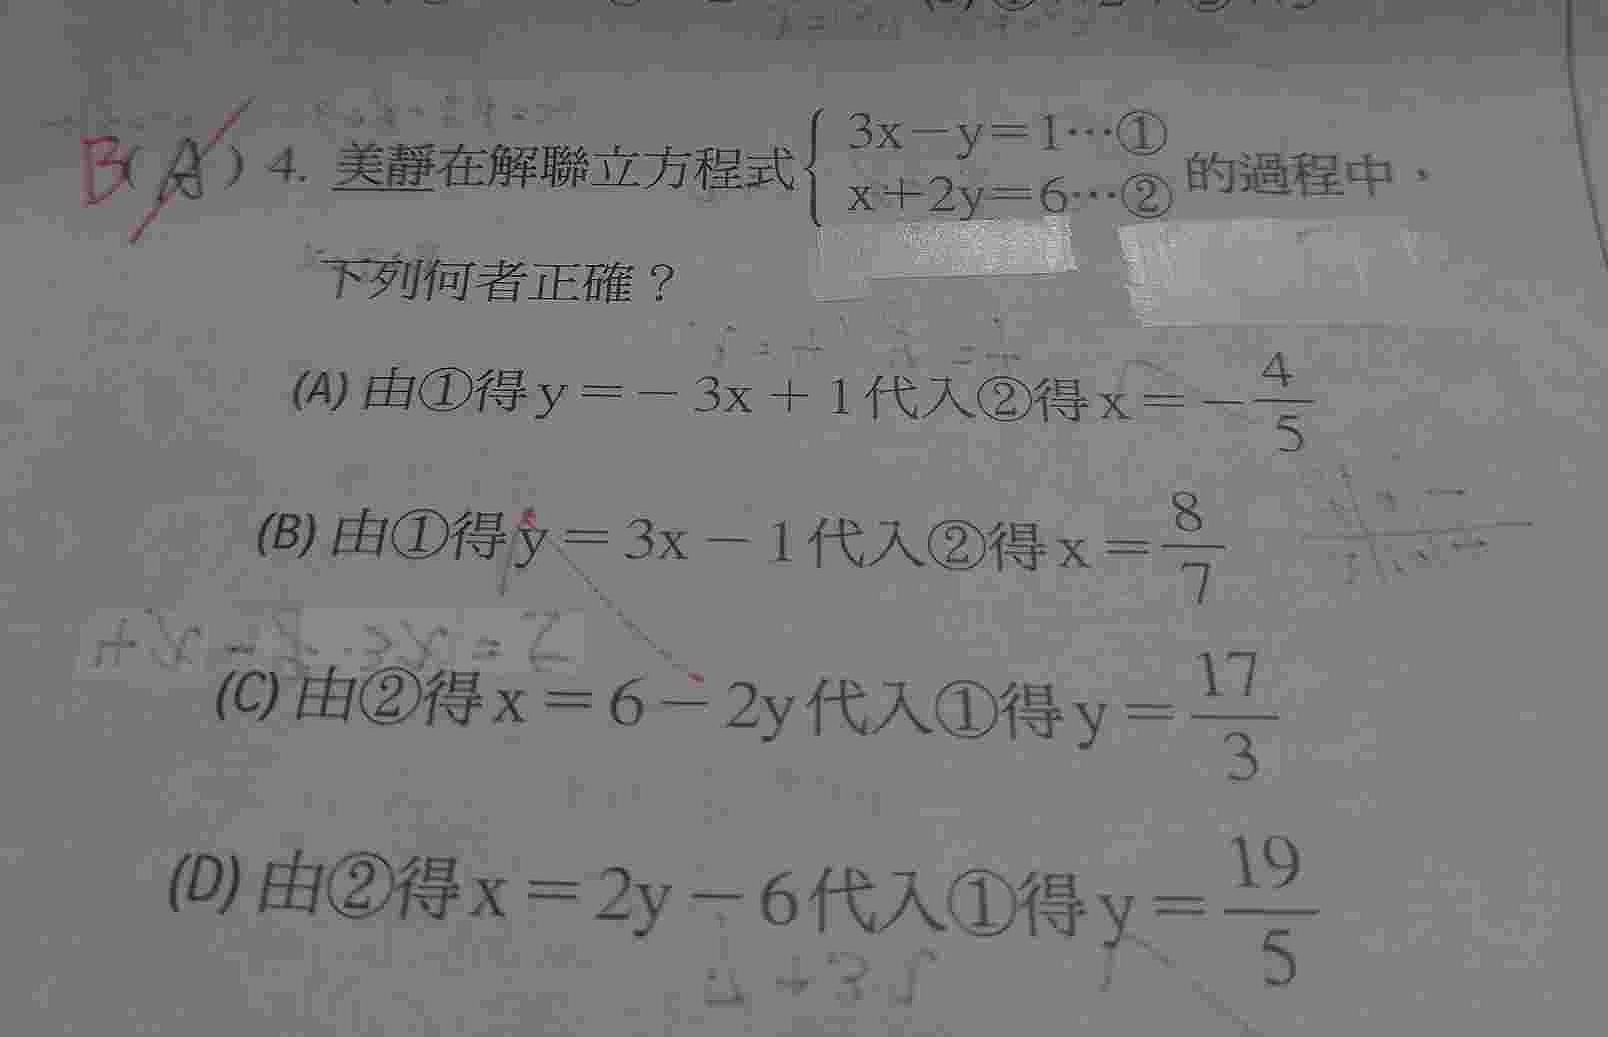 B(A) 4. 美靜在解聯立方程式{3x－y＝1…①
x＋2y＝6…② 的過程中，
下列何者正確？
(A) 由①得y＝－3x＋1代入②得x＝－4/5
(B) 由①得y＝3x－1代入②得x＝8/7
(C) 由②得x＝6－2y代入①得y＝17/3
(D) 由②得x＝2y－6代入①得y＝19/5